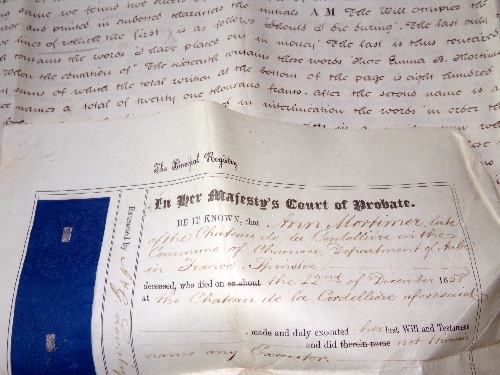 same we found two
and printed in embossed characters the initials A M The Will occupies the
two lines of which the first is as follows "Should I die during". The last only
contains the words "I have placed out in money" The last is thus contained
The sixteenth contains these words Miss Emma B. Mortimer
sums of which the total written at the bottom of the page is eight hundred
names a total of twenty one thousand francs. after the second name is a
in interlineation the words "in order to
The Principal Registry
In Her Majesty's Court of Probate.
BE IT KNOWN, that Ann Mortimer late
of the Chateau de la Cordelliere in the
Commune of Chaource Department of Aube
in France Spinster
deceased, who died on or about the 22nd of December 1858
at the Chateau de la Cordelliere aforesaid
, made and duly executed her last Will and Testament
and did therein name not therein
name any Executor.
Extracted by